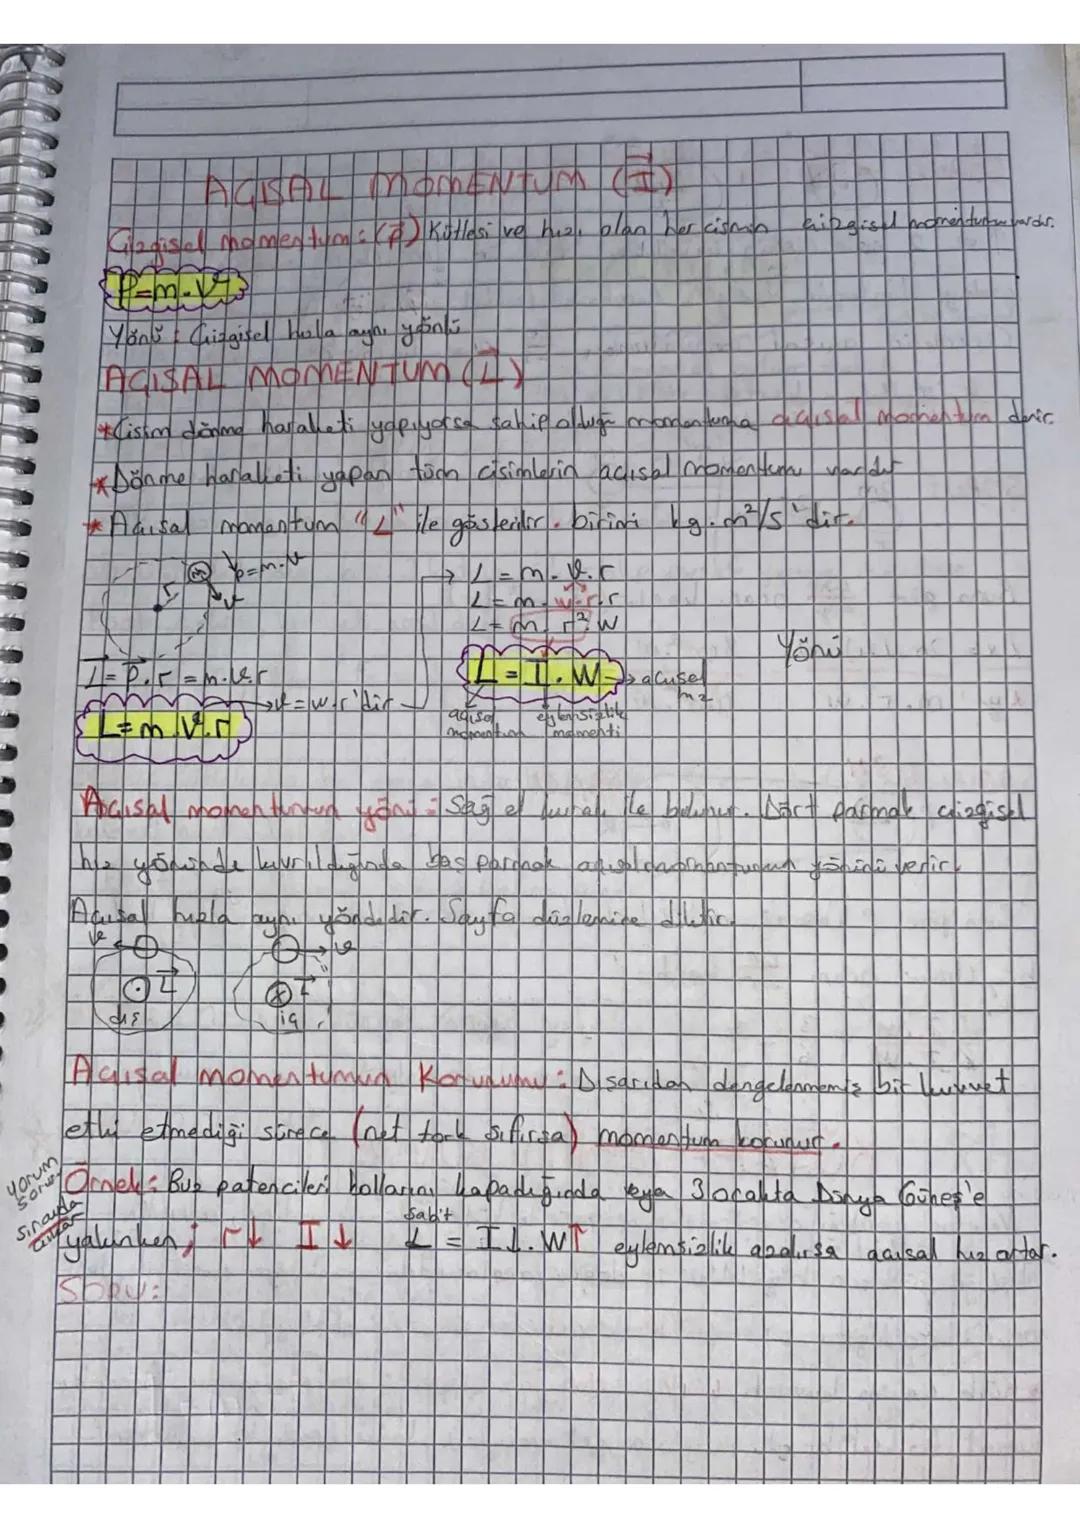 AÇISAL MOMENTUM (I)
Çizgisel momentum: (P) Kütlesi ve hızı olan her cismin çizgisel momentumu vardır.
P=m.V
Yönü: Çizgisel hızla aynı yönlü
AÇISAL MOMENTUM (L)
*Cisim dönme hareketi yapıyorsa sahip olduğu momentuma açısal momentum denir.
*Dönme hareketi yapan tüm cisimlerin açısal momentumu vardır
*Açısal momentum "L" ile gösterilir. birimi kg.m²/s'dir.
m P=m.V
r V
L=P.r=m.V.r
V=w.r'dir
L=m.V.r
L=m.V.r
L=m.w.r.r
L=m.r².w
L=I.W → açısal hız
açısal momentum eylemsizlik momenti
Yönü
Açısal momentumun yönü: Sağ el kuralı ile bulunur. Dört parmak çizgisel
hız yönünde kıvrıldığında baş parmak açısal momentumun yönünü verir.
Açısal hızla aynı yöndedir. Sayfa düzlemine diktir.
V L dış
V L iç
Açısal momentumun Korunumu: Dışarıdan dengelenmemiş bir kuvvet
etki etmediği sürece (net tork sıfırsa) momentum korunur.
yorum sorusu sınavda çıkar
Örnek: Buz patencileri kollarını kapadığında veya 3 ocakta Dünya Güneş'e
yakınken; r↓ I↓ sabit L = I↓.W↑ eylemsizlik azalırsa açısal hız artar.
SORU: